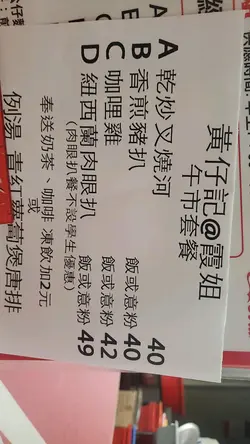 黃仔記@霞姐
午市套餐
A 乾炒叉燒河 40
B 香煎豬扒 飯或意粉 40
C 咖哩雞 飯或意粉 42
D 紐西蘭肉眼扒 飯或意粉 49
(肉眼扒餐不設學生優惠)
奉送奶茶、咖啡 凍飲加2元
或
例湯 青紅蘿蔔煲唐排